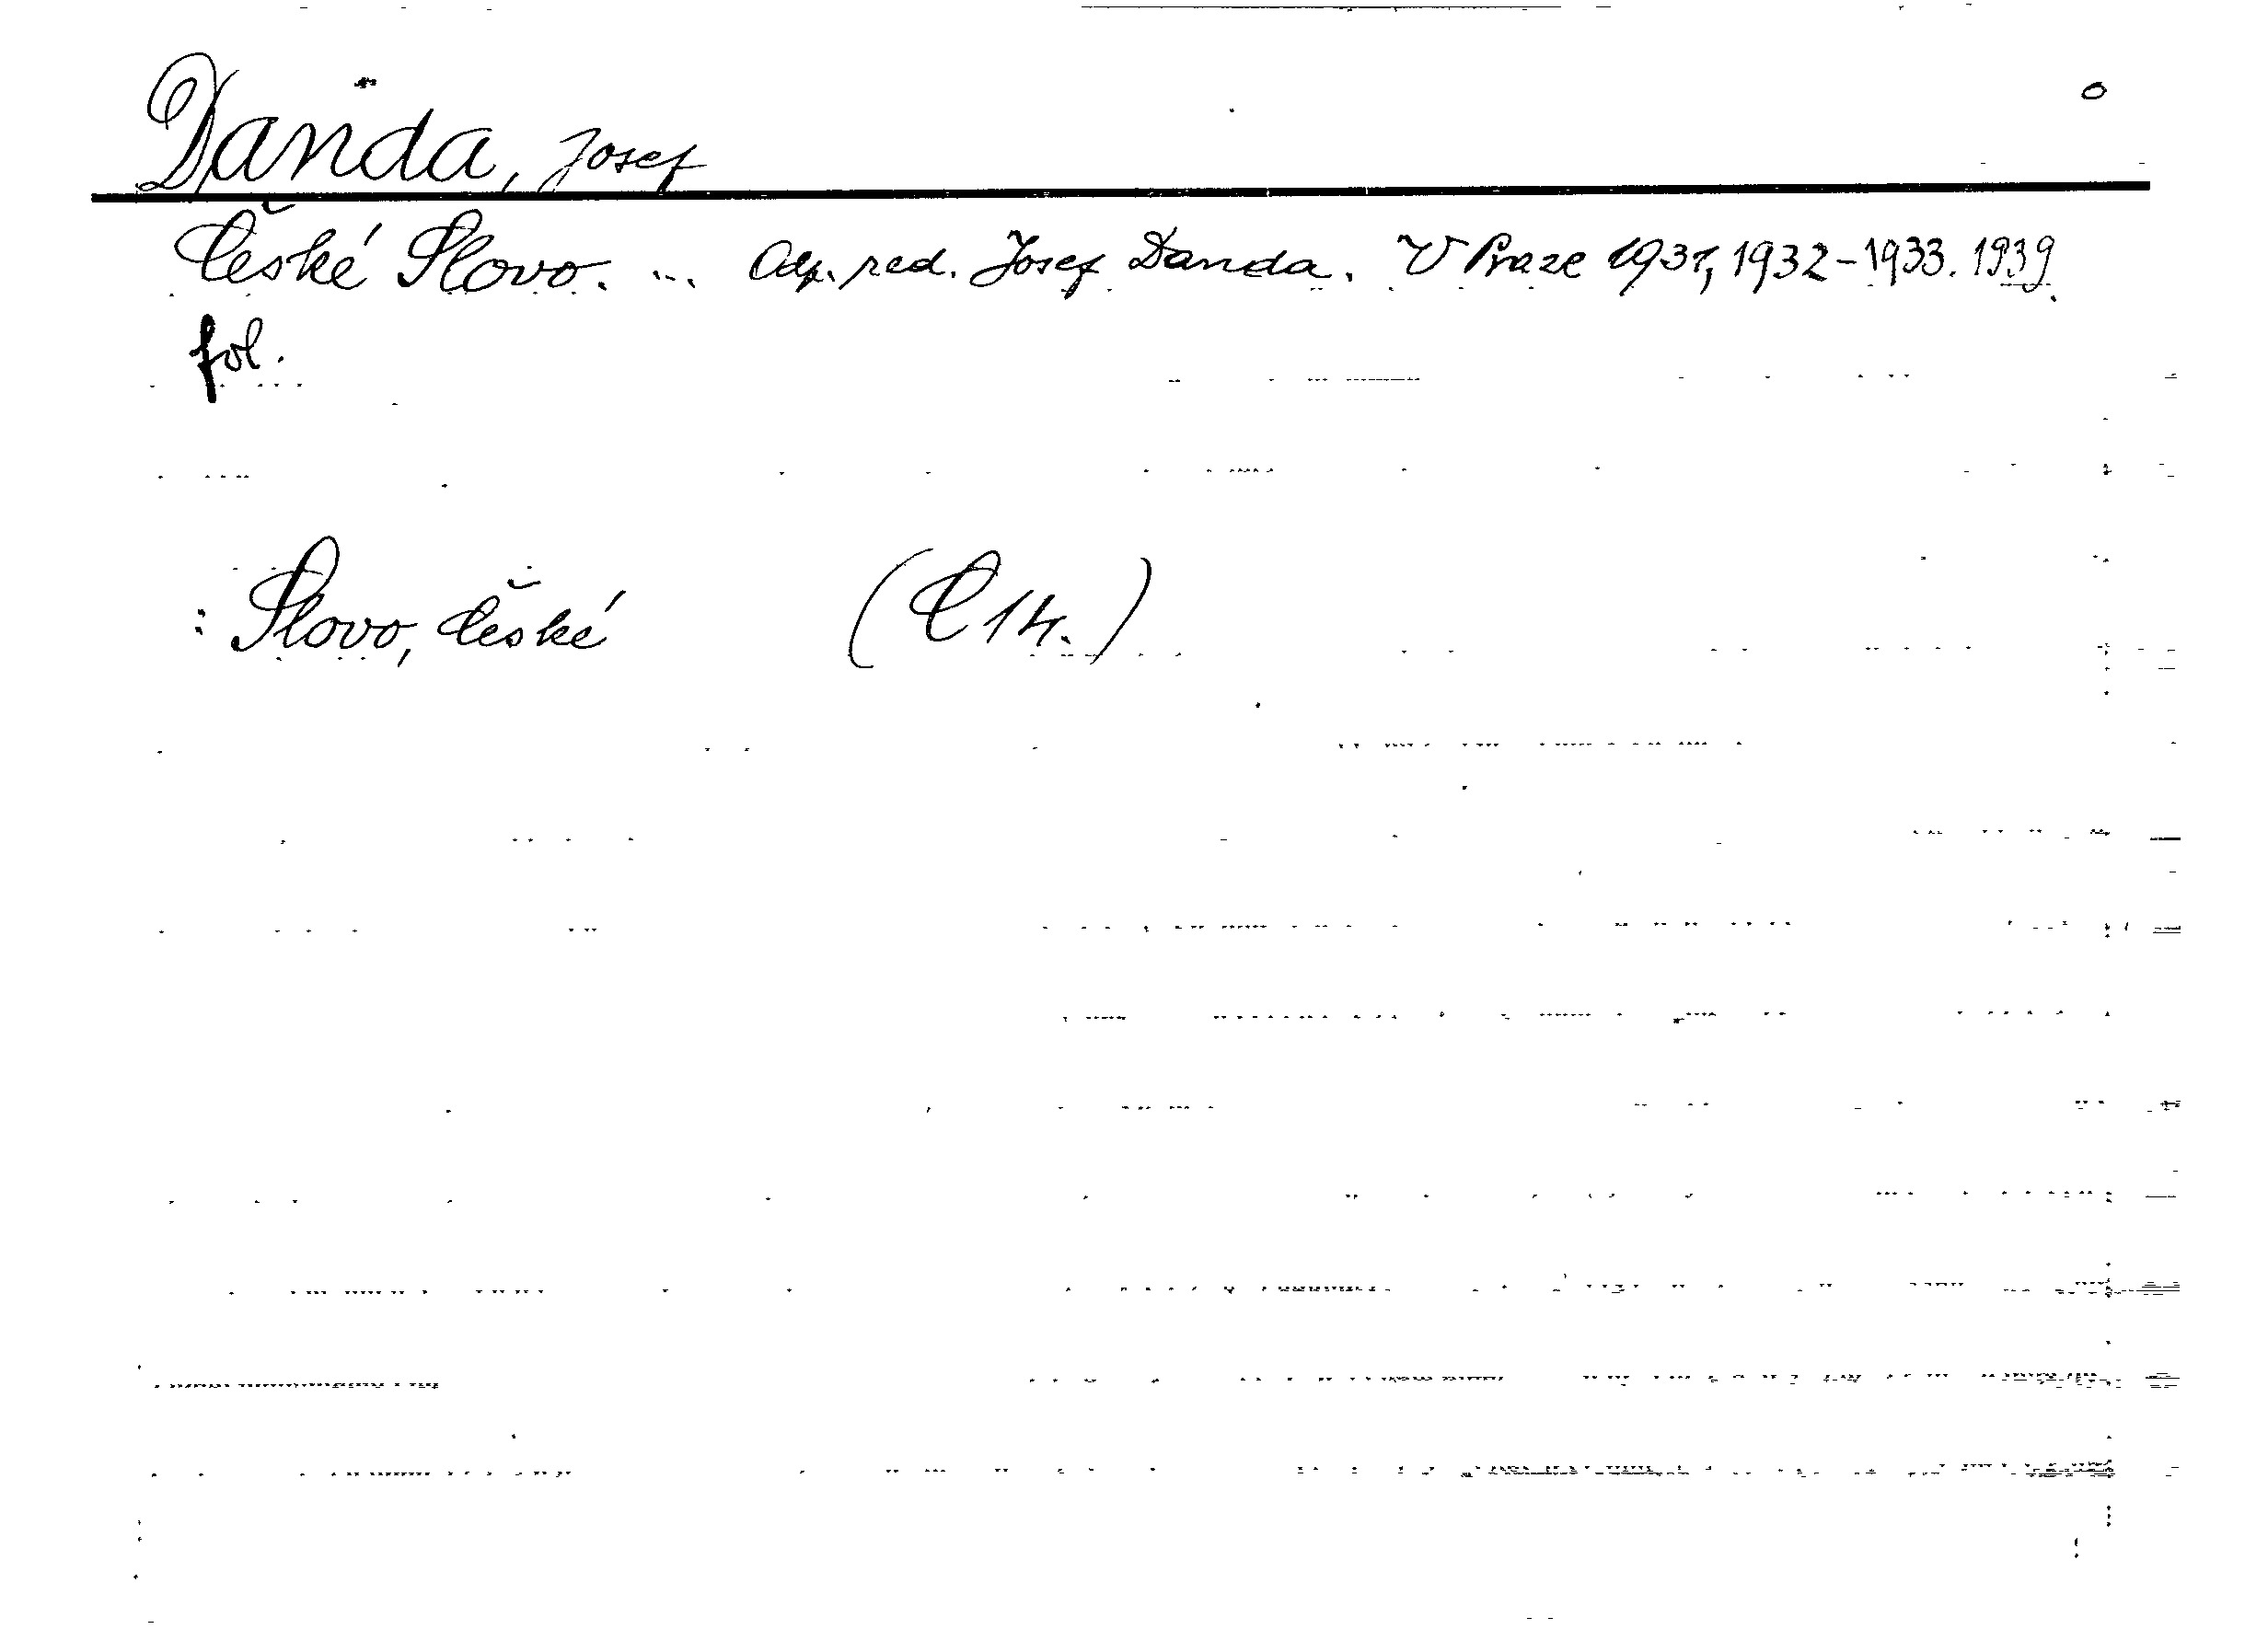 Danda, Josef
České Slovo. ... Odp. red. Josef Danda. V Praze 1931, 1932-1933. 1939.
fol.
: Slovo, České (C 14.)